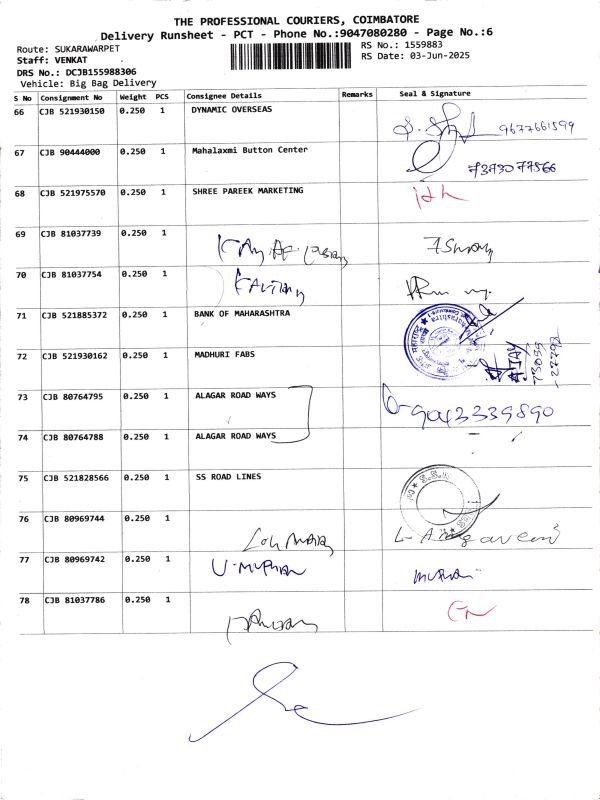 THE PROFESSIONAL COURIERS, COIMBATORE
Delivery Runsheet - PCT - Phone No.:9047080280 - Page No.:6
Route: SUKARAWARPET
RS No.: 1559883
Staff: VENKAT
RS Date: 03-Jun-2025
DRS No.: DCJB155988306
Vehicle: Big Bag Delivery
S No Consignment No Weight PCS Consignee Details Remarks Seal & Signature
66 CJB 521930150 0.250 1 DYNAMIC OVERSEAS 9677661599
67 CJB 90444000 0.250 1 Mahalaxmi Button Center 7373077566
68 CJB 521975570 0.250 1 SHREE PAREEK MARKETING
69 CJB 81037739 0.250 1
70 CJB 81037754 0.250 1
71 CJB 521885372 0.250 1 BANK OF MAHARASHTRA
72 CJB 521930162 0.250 1 MADHURI FABS AJAY
73 CJB 80764795 0.250 1 ALAGAR ROAD WAYS 9043339890
74 CJB 80764788 0.250 1 ALAGAR ROAD WAYS
75 CJB 521828566 0.250 1 SS ROAD LINES
76 CJB 80969744 0.250 1
77 CJB 80969742 0.250 1
78 CJB 81037786 0.250 1